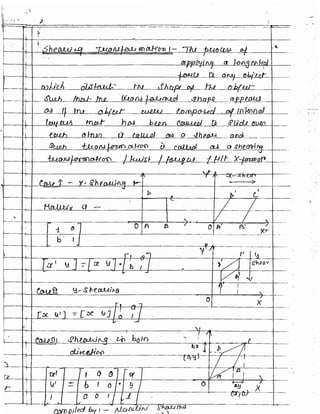 Shearing Transformation :- The process of
applying a tangential
force to any object
which distorts the shape of the object
such that the transformed shape appears
as if the object were composed of internal
layers that had been caused to slide over
each other is called as a shear and
such transformation is called as a shearing
transformation / twist / torque / tilt X-formatⁿ
Case I - x-Shearing
Y x-shear
D C D' C'
Matrix a --
O A B O A' B' X
[1 0
b 1]
[x' y] = [x y] · [1 0
b 1]
Y
y
shear
O X
Case II y-Shearing
[x y'] = [x y] [1 a
0 1]
Case III Shearing in both
direction
Y
bx
B
O ay X
(x,0)
[x'
y'
1] = [1 a 0
b 1 0
0 0 1] · [x
y
1]
Compiled by :- Sharma